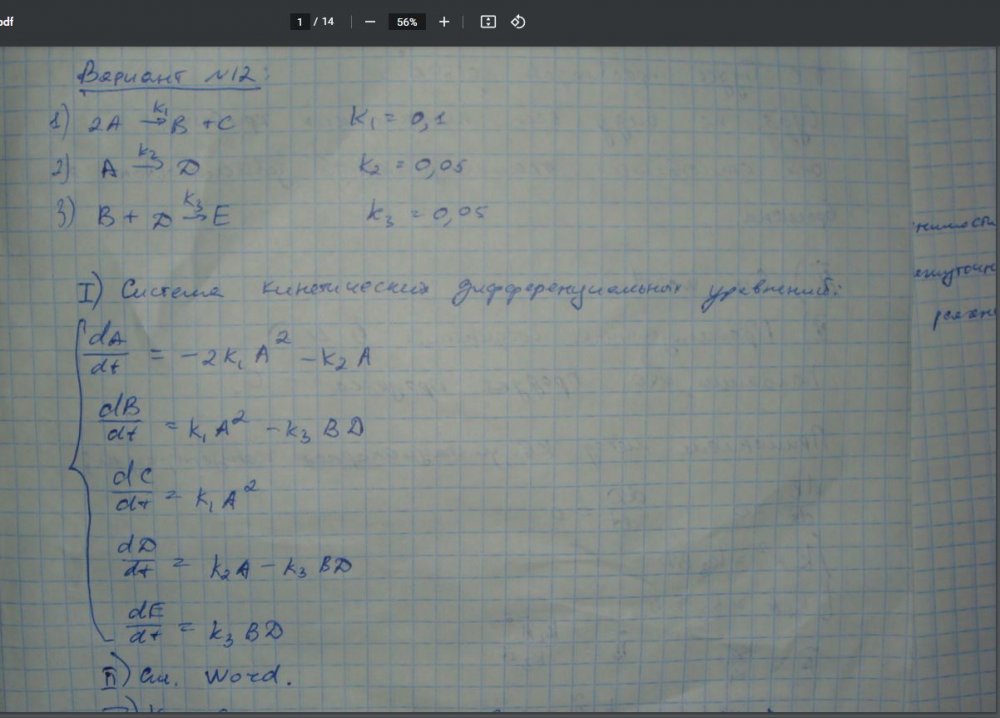 pdf
1 / 14 — 56% +
Вариант №12:
1) 2A →k₁ B + C k₁ = 0,1
2) A →k₂ D k₂ = 0,05
3) B + D →k₃ E k₃ = 0,05
I) Система кинетических дифференциальных уравнений:
dA/dt = -2k₁A² - k₂A
dB/dt = k₁A² - k₃BD
dC/dt = k₁A²
dD/dt = k₂A - k₃BD
dE/dt = k₃BD
II) См. Word.